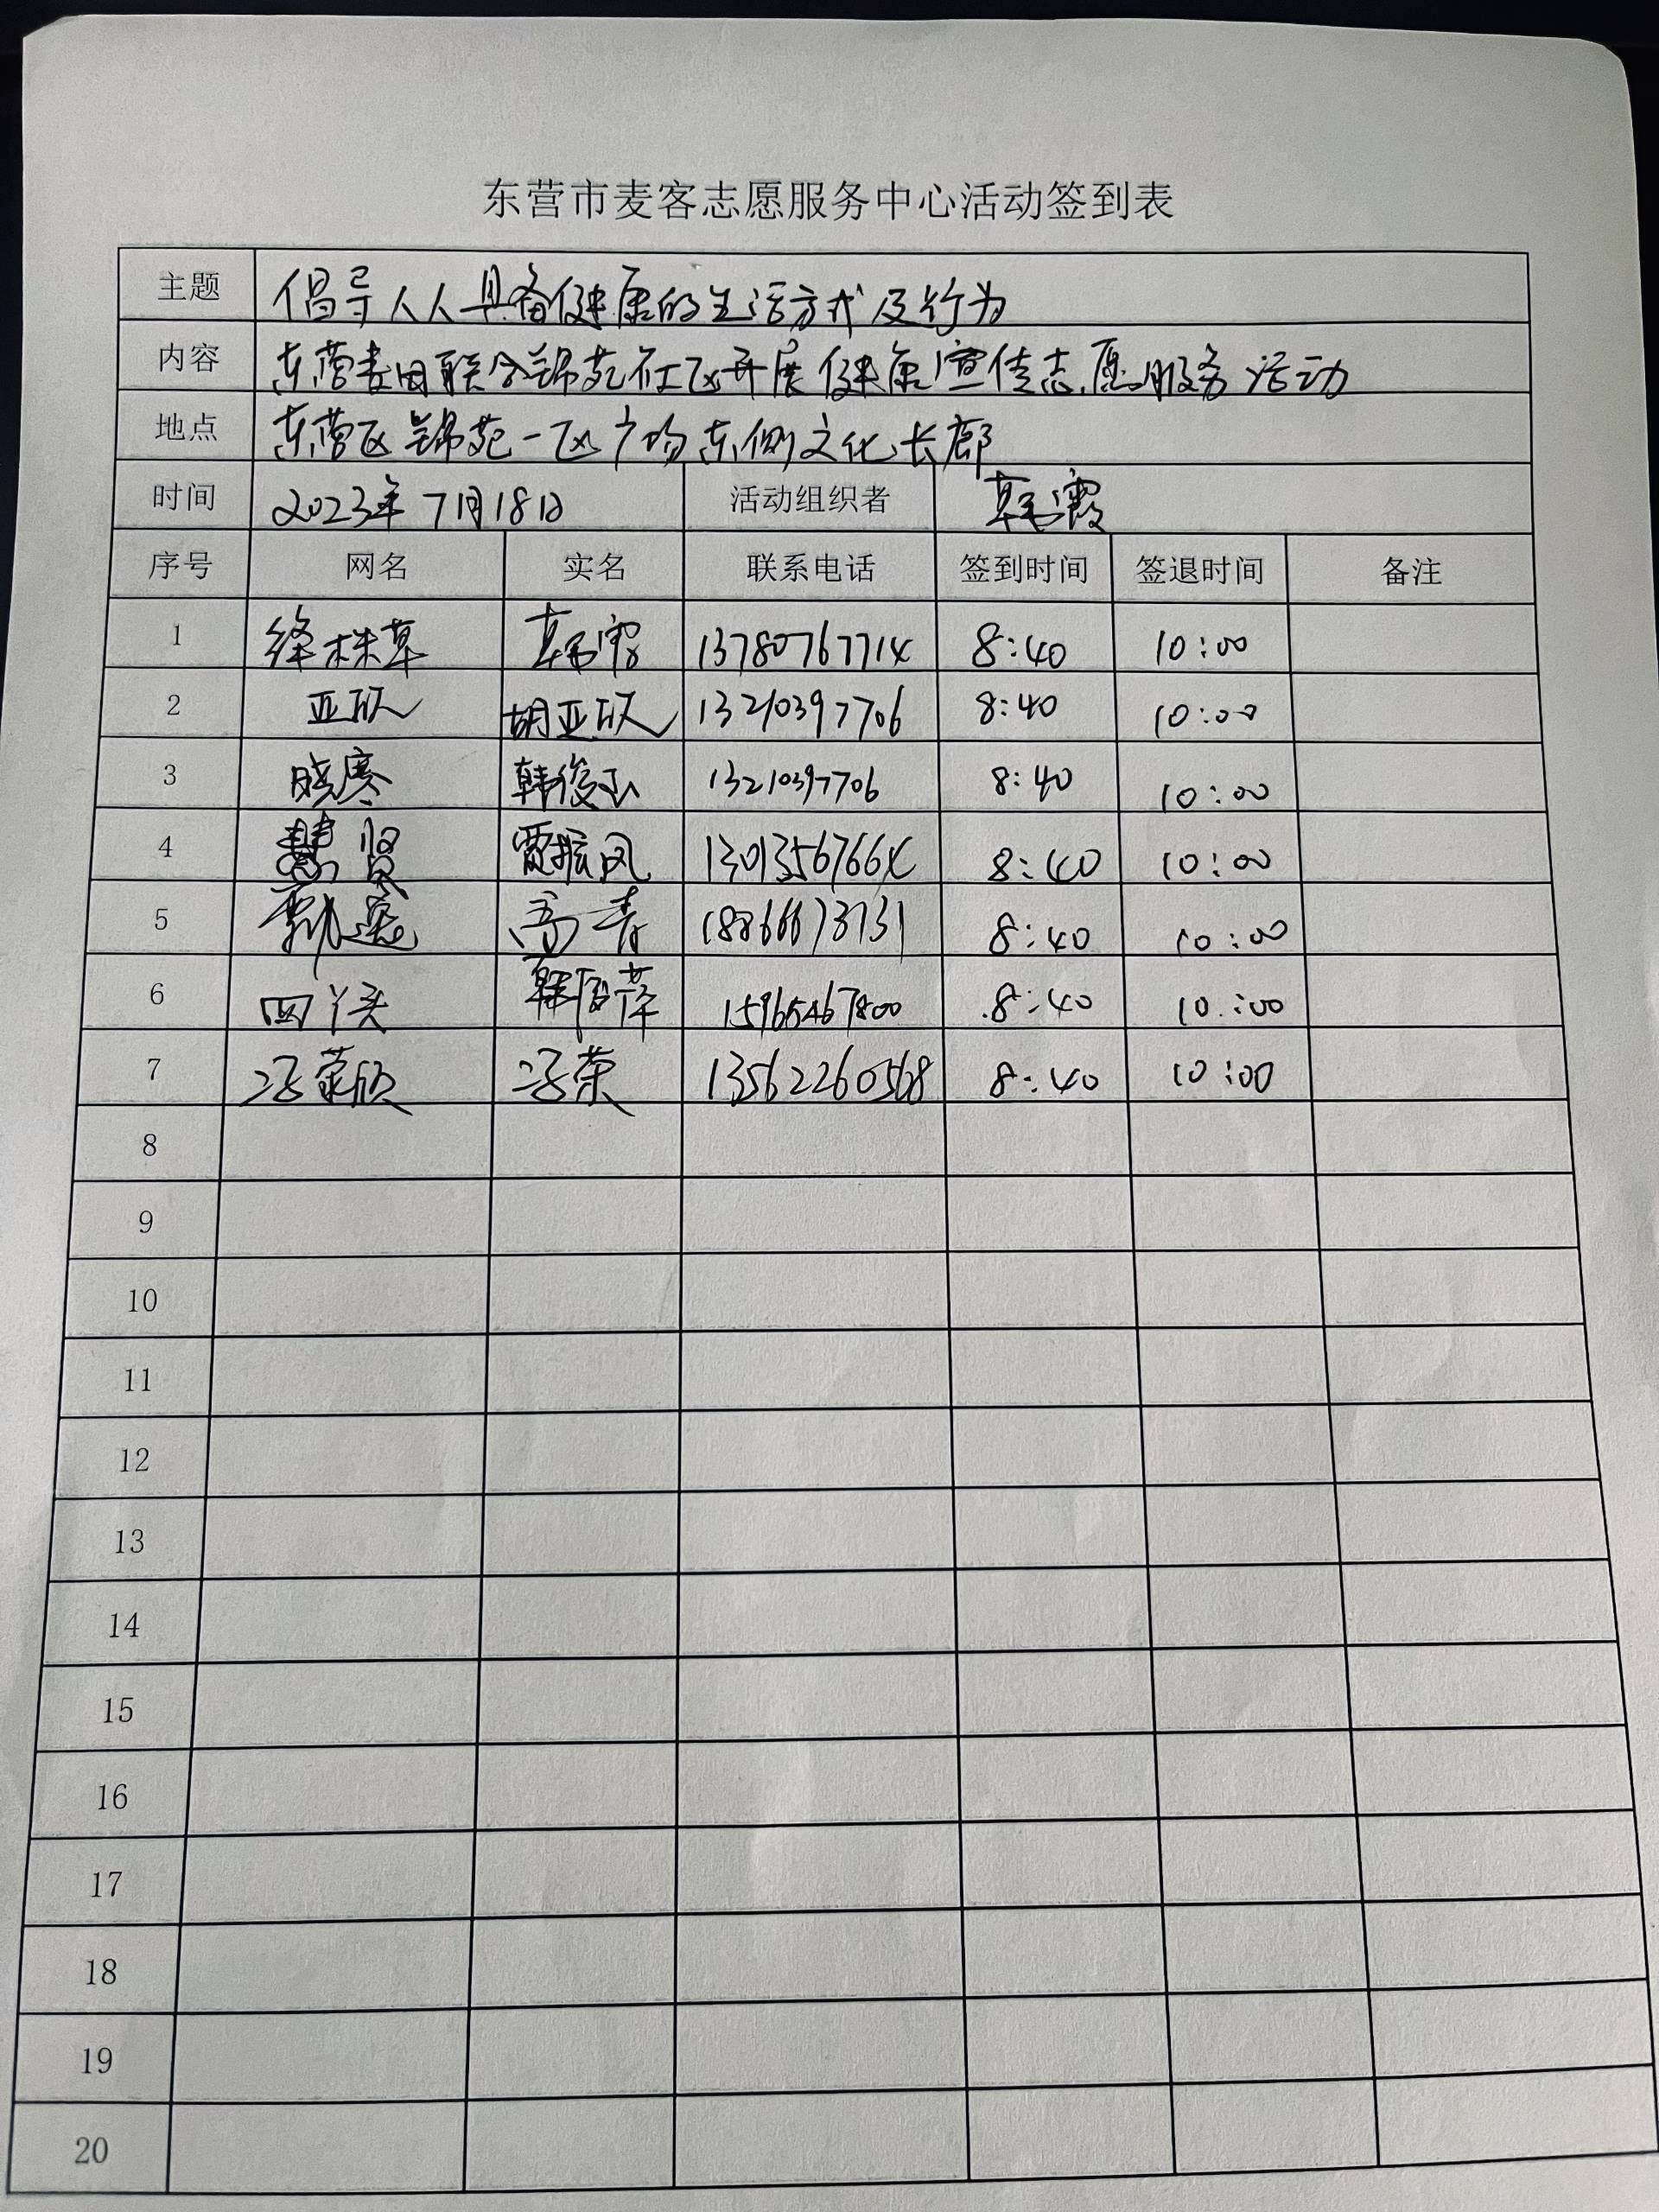 东营市麦客志愿服务中心活动签到表
主题 倡导人人具备健康的生活方式及行为
内容 东营麦田联合锦苑社区开展健康宣传志愿服务活动
地点 东营区锦苑一区广场东侧文化长廊
时间 2023年7月18日 活动组织者 韩霞
序号 网名 实名 联系电话 签到时间 签退时间 备注
1 绛株草 13780767714 8:40 10:00
2 亚欣 胡亚欣 13210397706 8:40 10:00
3 晓寒 韩俊玉 13210397706 8:40 10:00
4 慧贤 贾振凤 13013567664 8:40 10:00
5 高青 18866673731 8:40 10:00
6 四丫头 15965467800 8:40 10:00
7 冯荣欣 冯荣 13562260568 8:40 10:00
8
9
10
11
12
13
14
15
16
17
18
19
20